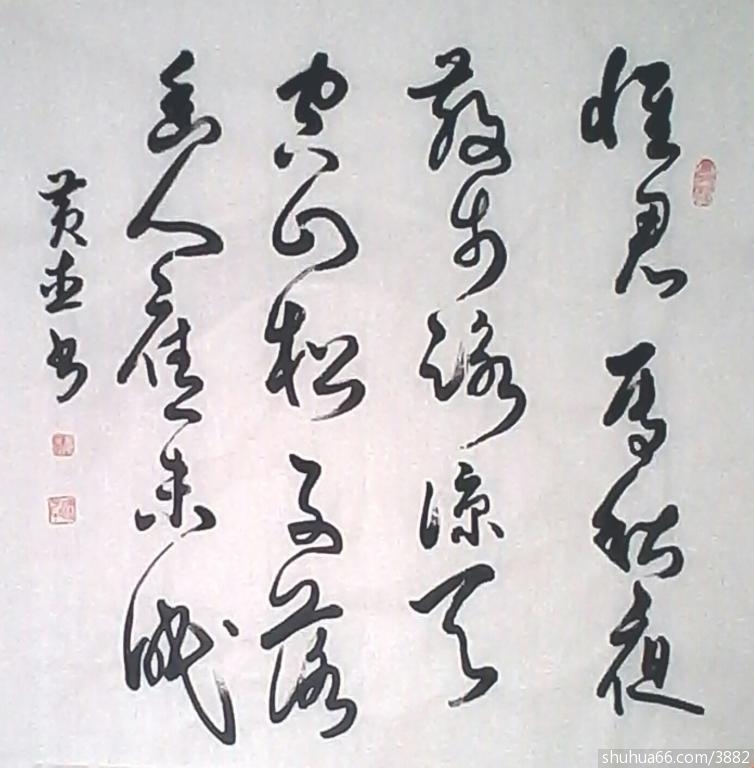 懷君属秋夜
散步詠涼天
空山松子落
幽人應未眠
黄 书
shuhua66.com/3882